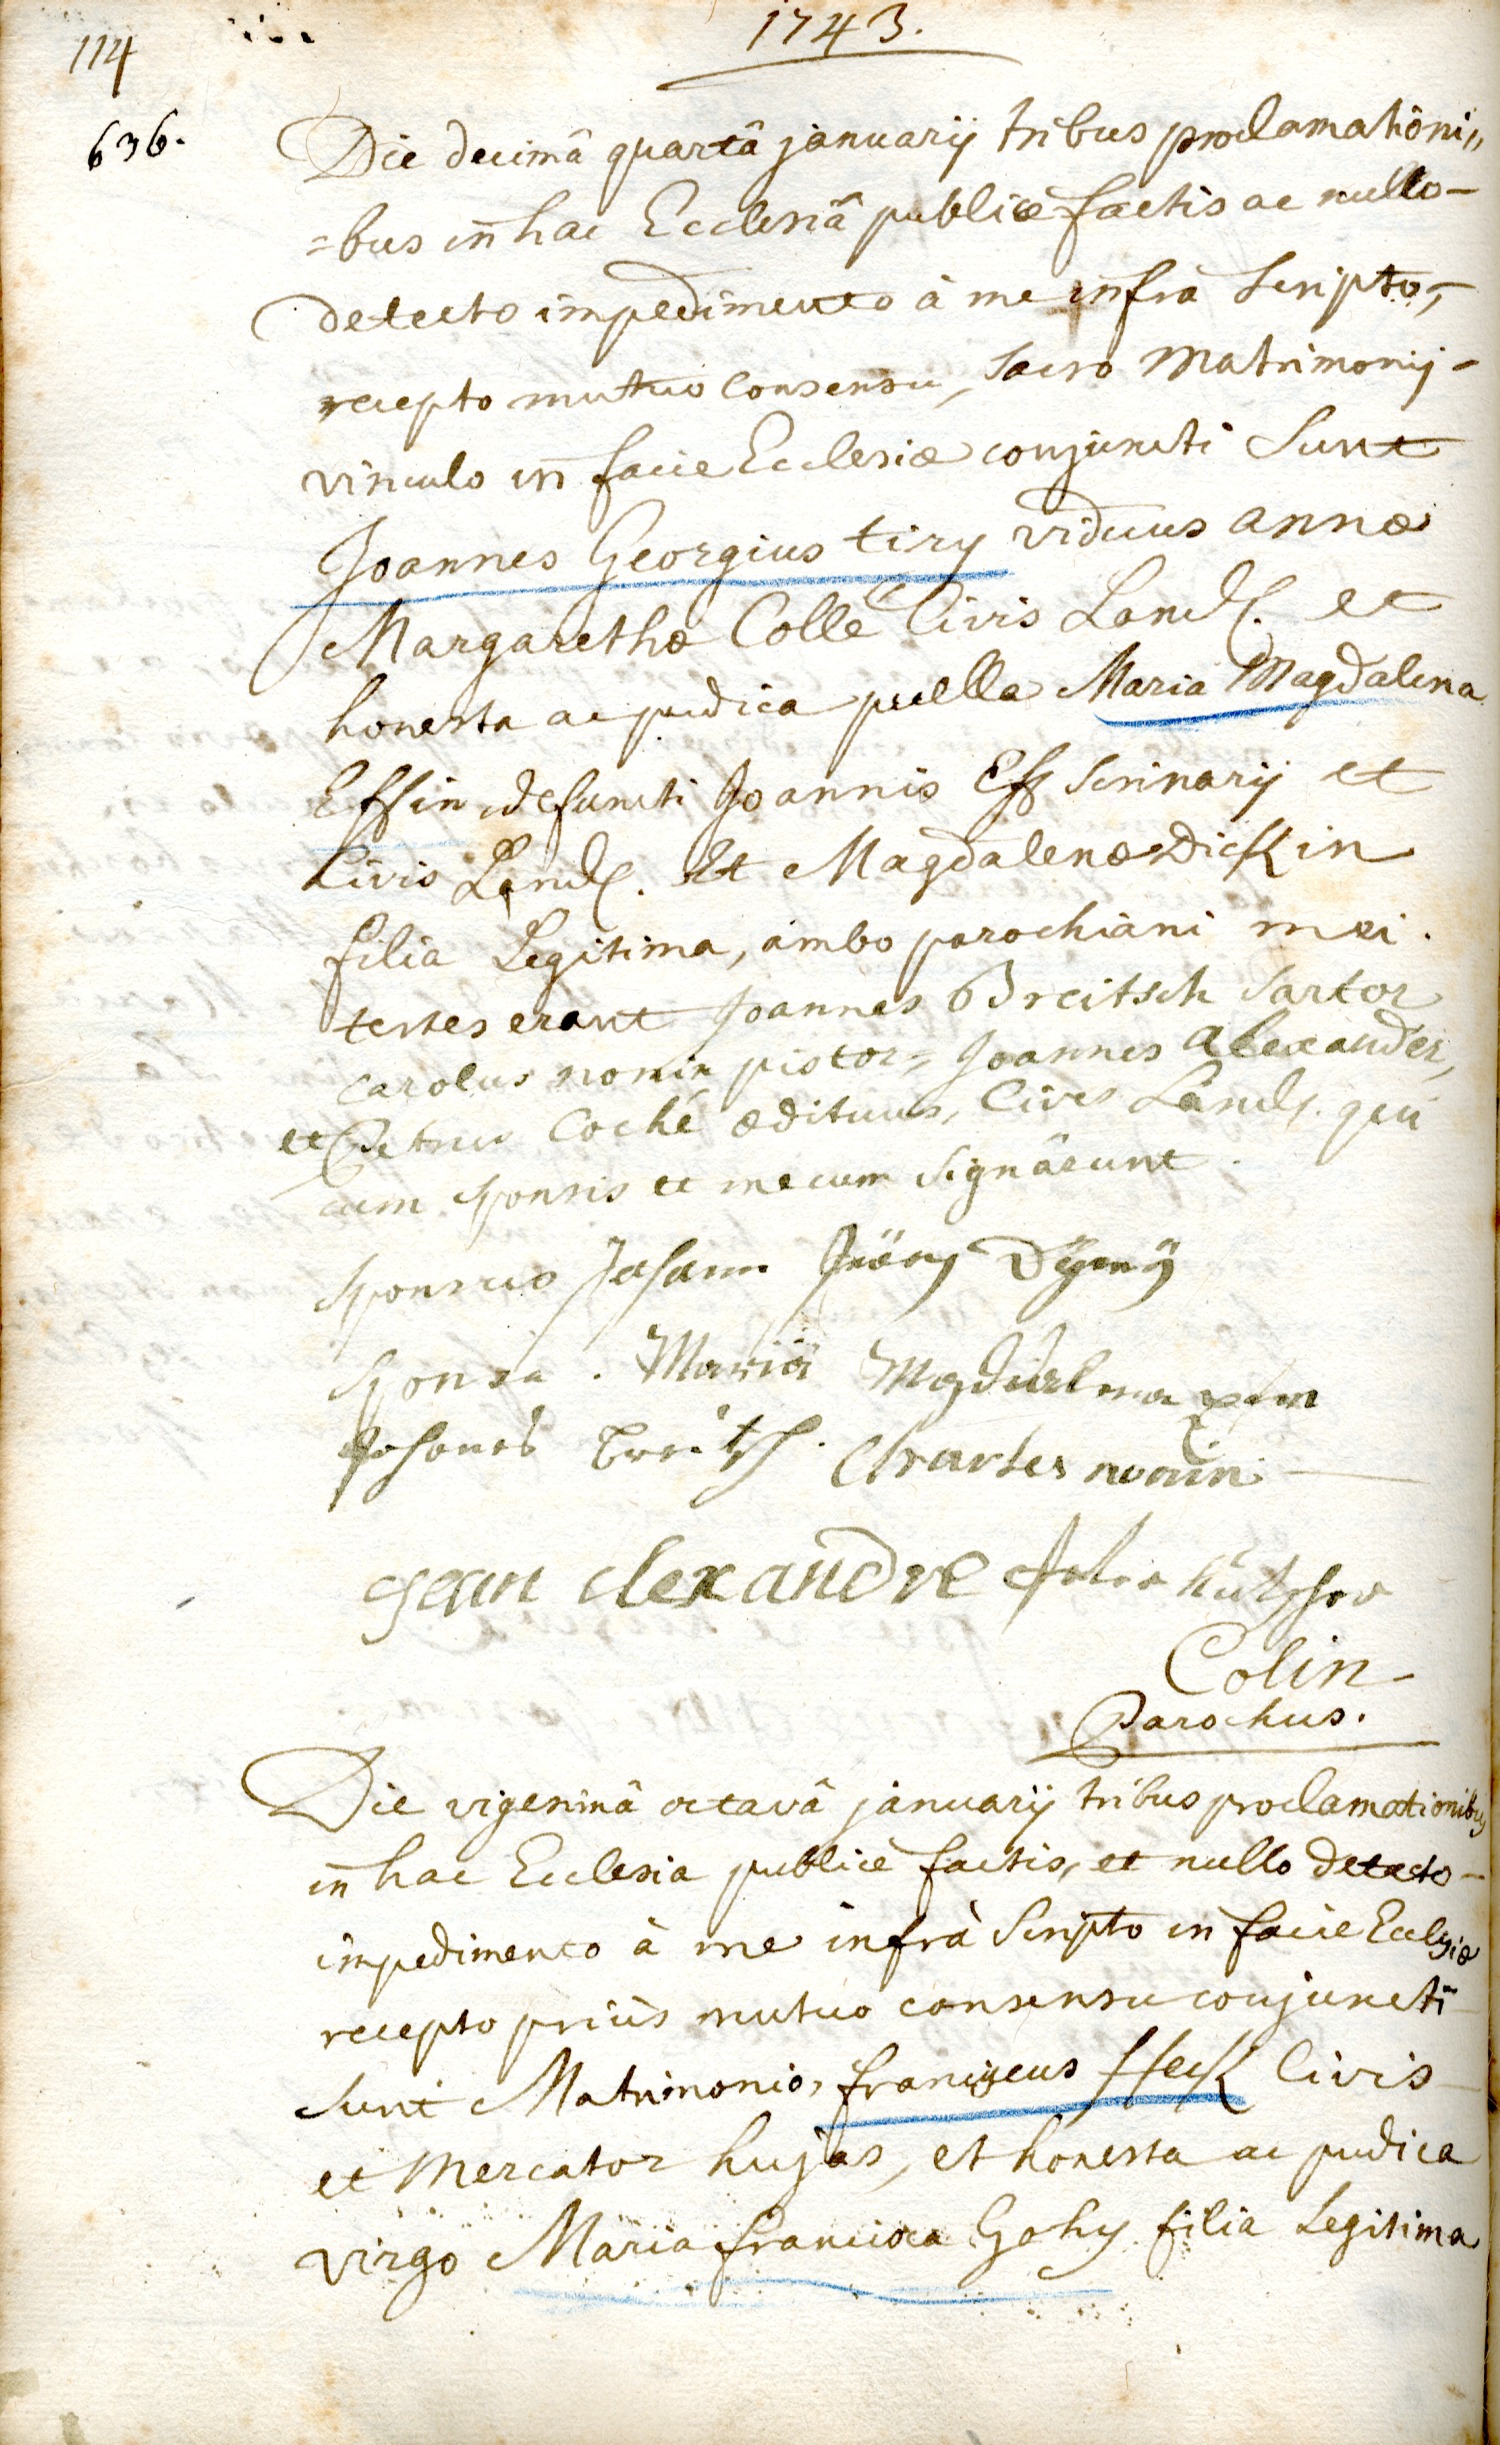 114
1743.
636.
Die decimâ quartâ januarij tribus proclamationi,,
=bus in hac Ecclesiâ publicè factis ac nullo-
detecto impedimento à me infrà Scripto,
recepto mutuo consensu, Sacro Matrimonij-
vinculo in facie Ecclesiæ conjuncti Sunt
Joannes Georgius tiry viduus annæ
Margarethæ Collé Civis Land. et
honesta ac pudica puella Maria Magdalena
Essin defuncti Joannis Ess Scrinarij et
Civis Land. Et Magdalenæ Dickin
filia Legitima, ambo parochiani mei.
testes erant Joannes Breitsch Sartor
carolus nonin pistor, Joannes alexander,
et Petrus Coché ædituus, Cives Land. qui
cum sponsis et mecum Signârunt.
Sponsus Johann Jröry
Sponsa. Maria
Charles nonin
Jean alexandre
Colin-
Parochus.
Die vigesimâ octavâ januarij tribus proclamationibus
in hac Ecclesia publicè factis, et nullo detecto-
impedimento à me infrà Scripto in facie Ecclesiæ
recepto priùs mutuo consensu conjuncti
Sunt Matrimonio, franciscus ffeck Civis
et Mercator hujas, et honesta ac pudica
virgo Maria francisca Gohy filia Legitima